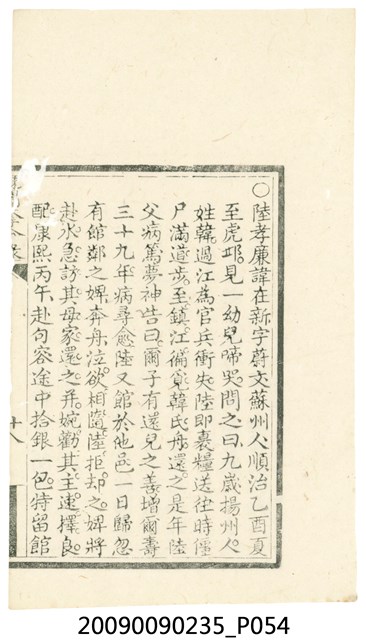 ○陸孝廉諱在新字蔚文蘇州人順治乙酉夏
至虎邱見一幼兒啼哭問之曰九歲揚州人
姓韓過江為官兵衝失陸即裹糧送往時僵
尸滿道步至鎮江徧覓韓氏舟還之是年陸
父病篤夢神告曰爾子有還兒之善增爾壽
三十九年病尋愈陸又館於他邑一日歸忽
有館鄰之婢奔舟泣欲相隨陸拒却之婢將
赴水急訪其母家還之并婉勸其主速擇良
配康熙丙午赴句容途中拾銀一包特留館
十八
20090090235_P054